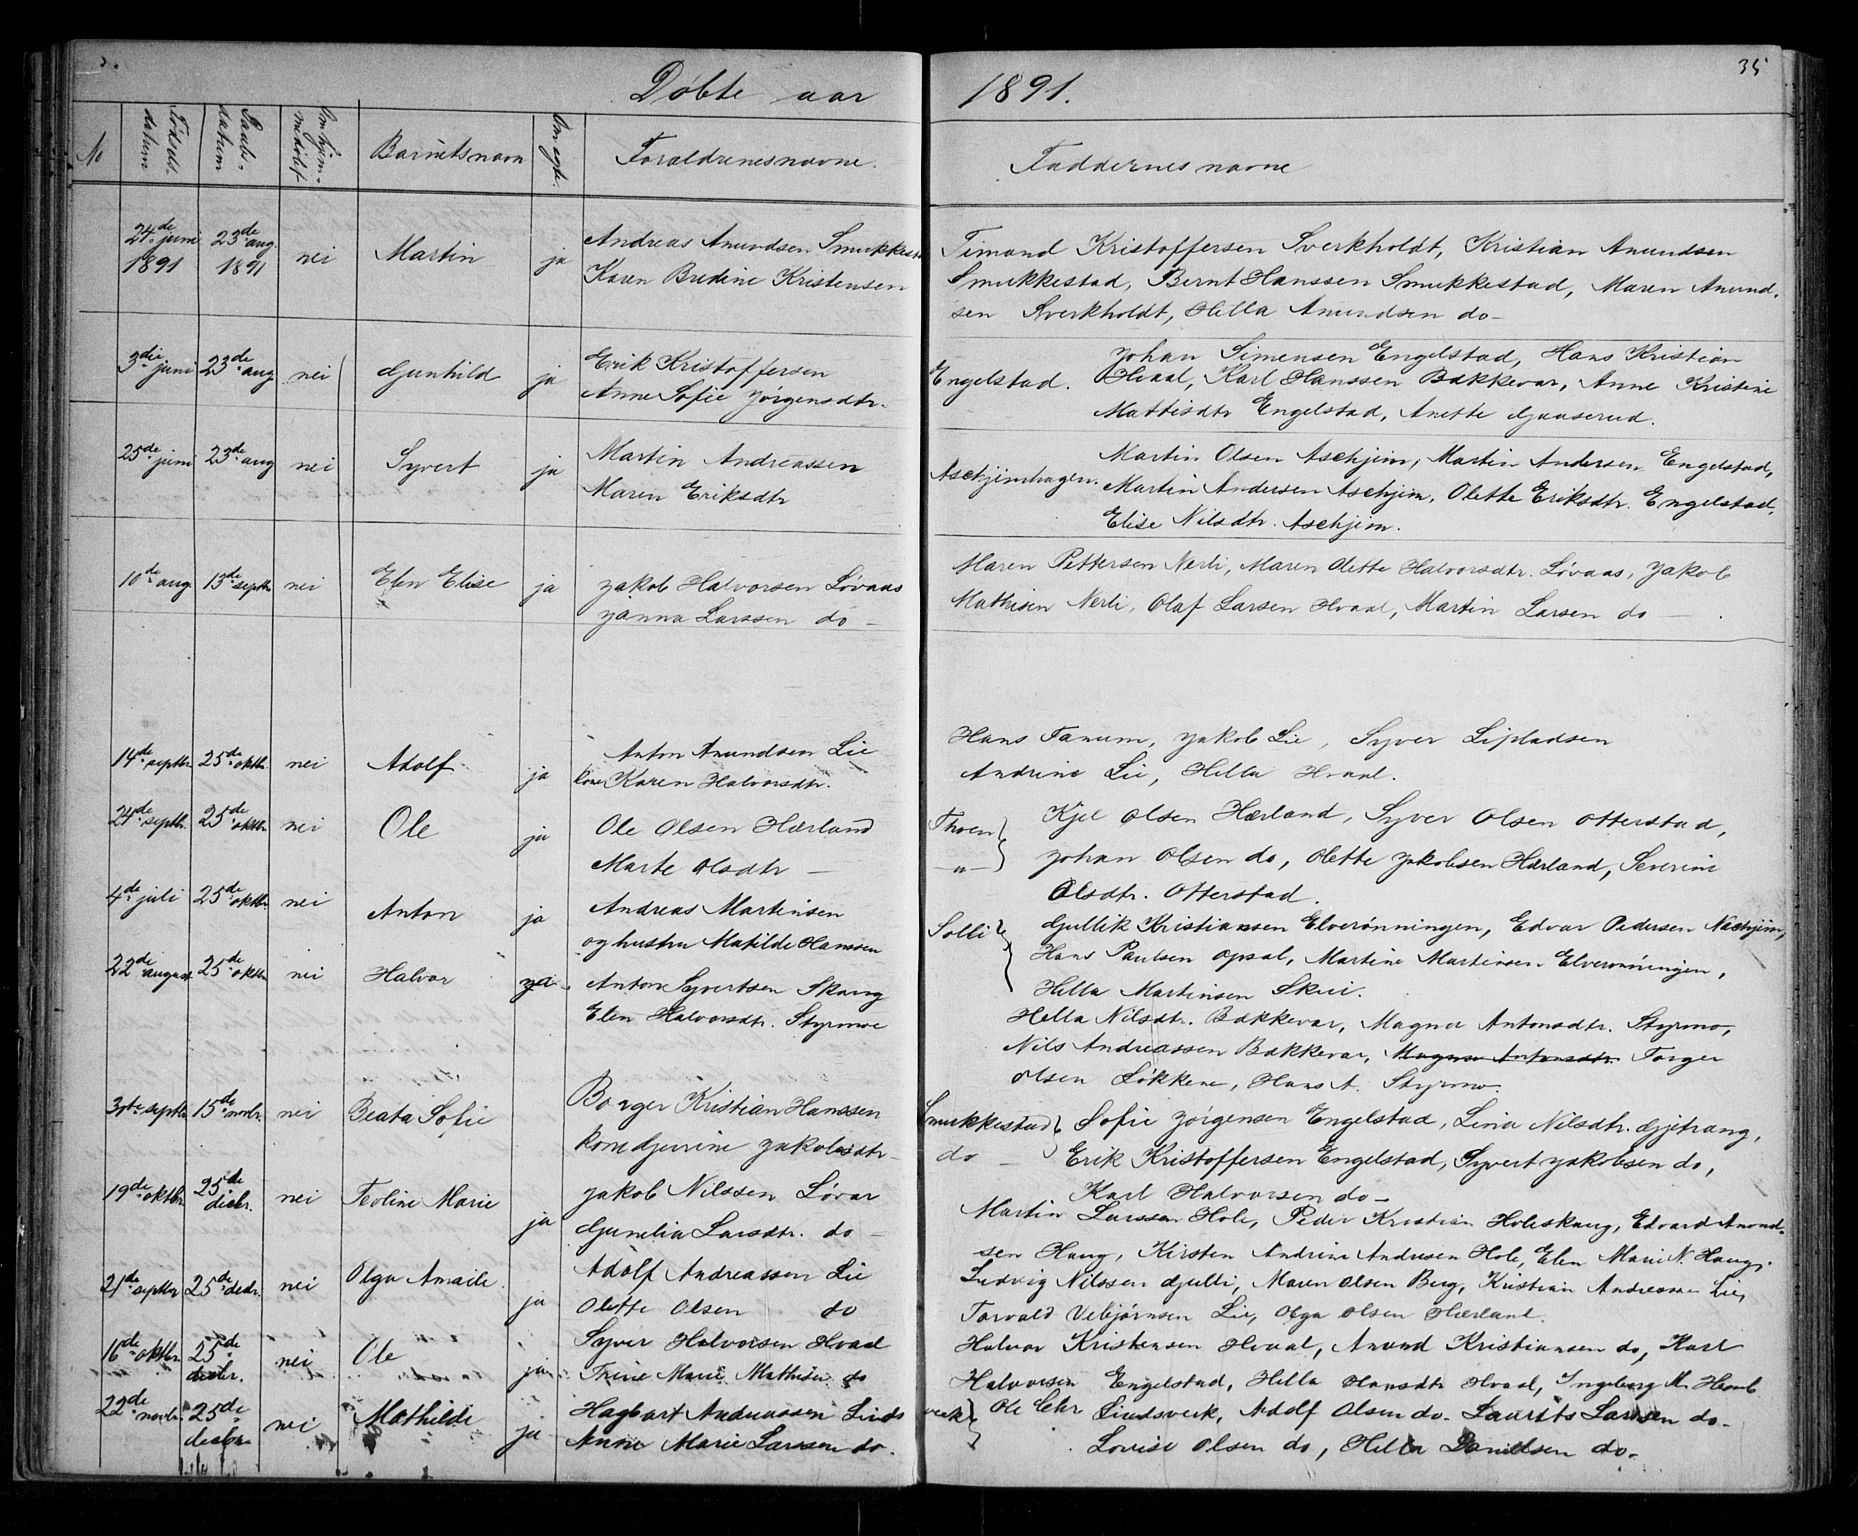 35
Døbte aar 1891.
No
Fødsels-
datum
Daabs-
datum
Om hjem-
medøbt
Barnets navn
Om egte.
Foraldrenes navne.
Faddernes navne
24de juni 1891 23de aug. 1891 nei Martin ja Andreas Anundsen Smukkest
Karen Bredine Kristensen
Timand Kristoffersen Sverkholdt, Kristian Anundsen
Smukkestad, Bernt Hanssen Smukkestad, Maren Anund-
sen Sverkholdt, Hella Anundsen do –
3die juni 23de aug nei Gunhild ja Erik Kristoffersen
Anne Sofie Jørgensdtr.
Engelstad. Johan Simensen Engelstad, Hans Kristian
Hvaal, Karl Hanssen Bakkevar, Anne Kristine
Mattisdtr Engelstad, Anette Gaaserud.
25de juni 23de aug nei Syvert ja Martin Andreassen
Maren Eriksdtr
Aschjimhagen. Martin Olsen Aschjim, Martin Andersen Engelstad,
Martin Andersen Aschjim, Olette Eriksdtr. Engelstad,
Elise Nilsdtr. Aschjim.
10de aug 13de septbr nei Elen Elise ja Jakob Halvorsen Løvaas
Janna Larssen do –
Maren Pettersen Nerli, Maren Olette Halvorsdtr. Løvaas, Jakob
Mathisen Nerli, Olaf Larsen Hvaal, Martin Larsen do –
14de septbr. 25de oktbr. nei Adolf ja Anton Anundsen Lie
kone Karen Halvorsdtr.
Hans Tanum, Jakob Lie, Syver Lipladsen
Andrine Lie, Hella Hvaal.
24de septbr. 25de oktbr nei Ole ja Ole Olsen Hærland
Marte Olsdtr –
Thoen
– " –
Kjel Olsen Hærland, Syver Olsen Otterstad,
Johan Olsen do, Olette Jakobsen Hærland, Severine
Olsdtr. Otterstad.
4de juli 25de oktbr. nei Anton ja Andreas Martinsen
og hustru Matilde Hanssen
Solli
Gullik Kristianssen Elverønningen, Edvar Pedersen Aschjim,
Hans Paulsen Opsal, Martine Martinsen Elverønningen,
Hella Martinsen Skui.
22de august 25de oktbr nei Halvor ja Anton Syvertsen Skaug
Elen Halvorsdtr. Styrmoe
Hella Nilsdtr. Bakkevar, Magna Antonsdtr. Styrmo,
Nils Andreassen Bakkevar, Magna Antonsdtr. Torger
Olsen Løkkene, Hans A. Styrmo.
30te septbr 15de novbr. nei Beata Sofie Borger Kristian Hanssen
kone Gjerrine Jakobsdtr –
Smukkestad
do –
Sofie Jørgensen Engelstad, Lina Nilsdtr. Gjetrang,
Erik Kristoffersen Engelstad, Syvert Jakobsen do,
Karl Halvorsen do –
19de oktbr. 25de decbr. nei Teoline Marie ja Jakob Nilssen Løvar
Gunelia Larsdtr. do –
Martin Larssen Hole, Peder Kristian Holeskaug, Edvard Anund-
sen Haug, Kirsten Andrine Andresen Hole, Elen Marie N. Haug.
21de septbr 25de decbr. nei Olga Amaile. ja Adolf Andreassen Lie
Olette Olsen do
Ludvig Nilssen Gulli, Maren Olsen Berg, Kristian Andreassen Lie,
Torvald Vebjørnsen Lie, Olga Olsen Hærland.
16de oktbr 25de decbr. nei Ole ja Syver Halvorsen Hvaal
Trine Marie Mathisen do
Halvor Kristensen Hvaal, Anund Kristiansen do, Karl
Halvorsen Engelstad, Hella Hansdtr Hvaal, Ingeborg M. Hvaal
22de novbr 25de decbr. nei Mathilde ja Hagbart Andreassen Linds
Anne Marie Larssen do.
verk
Ole Chr Lindsverk, Adolf Olsen do. Laurits Larsen do –
Lovise Olsen do, Hella Danielsen do.